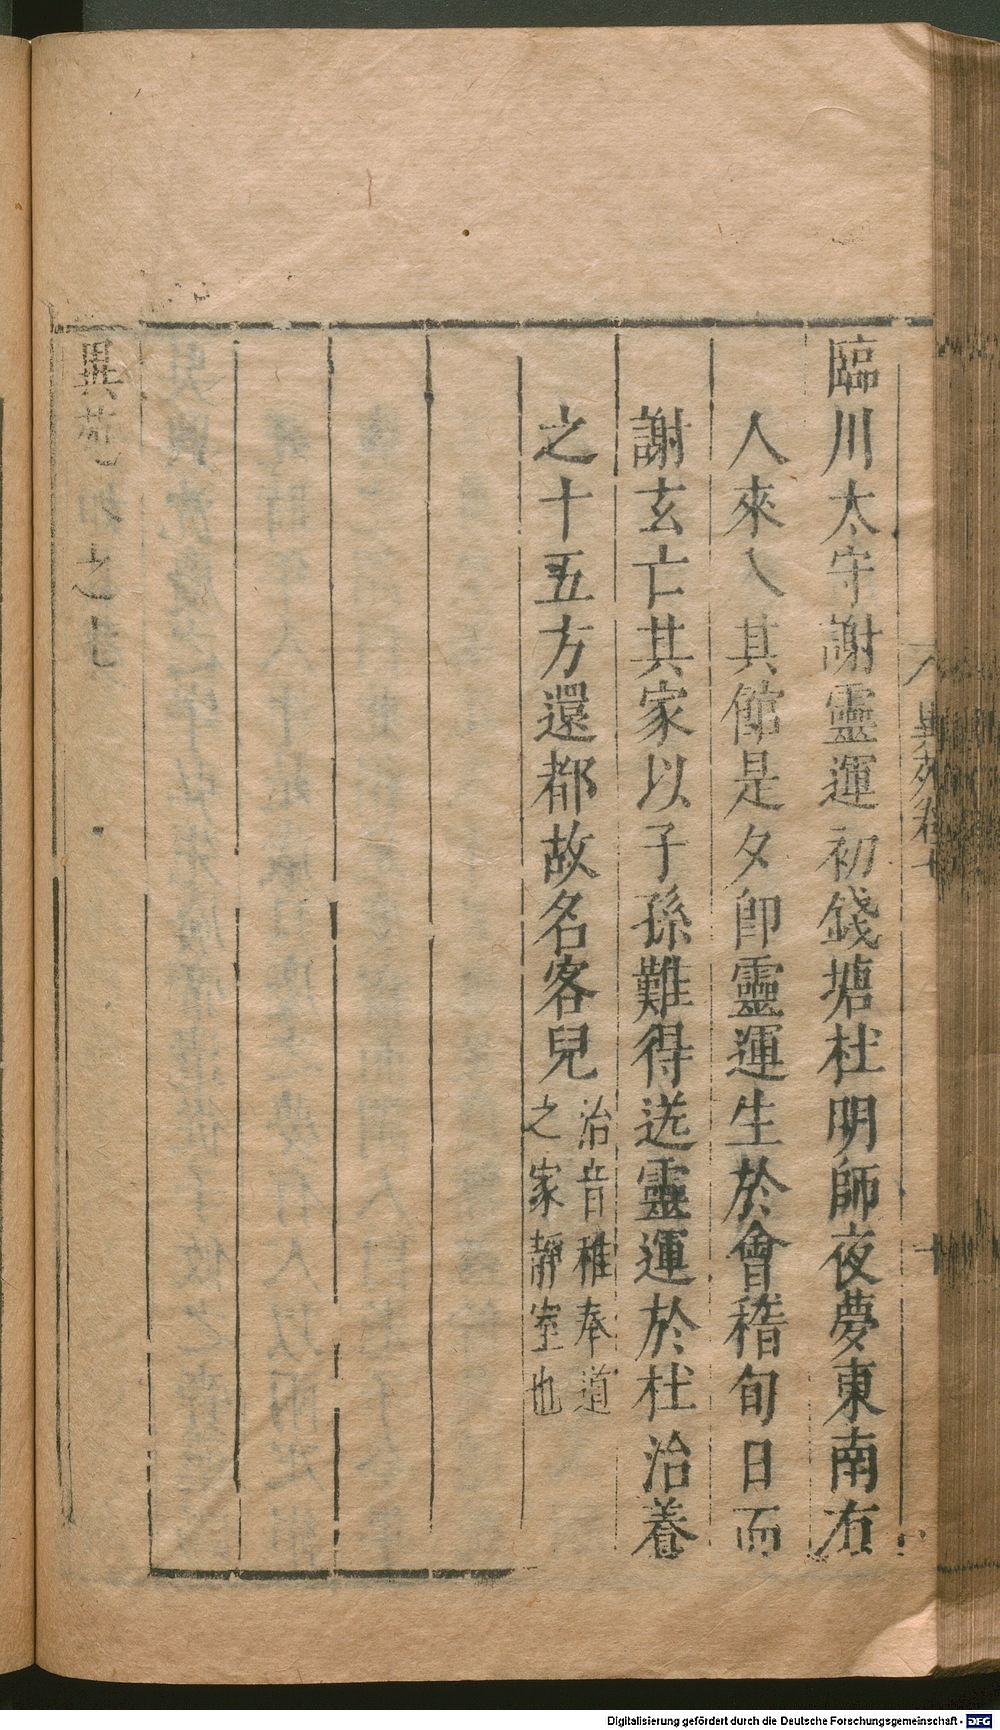 臨川太守謝靈運初錢塘杜明師夜夢東南有
人來入其館是夕卽靈運生於會稽旬日而
謝玄亡其家以子孫難得送靈運於杜治養
之十五方還都故名客兒
治音稚奉道
之家靜室也
異苑
之
異苑卷十
十
Digitalisierung gefördert durch die Deutsche Forschungsgemeinschaft - DFG